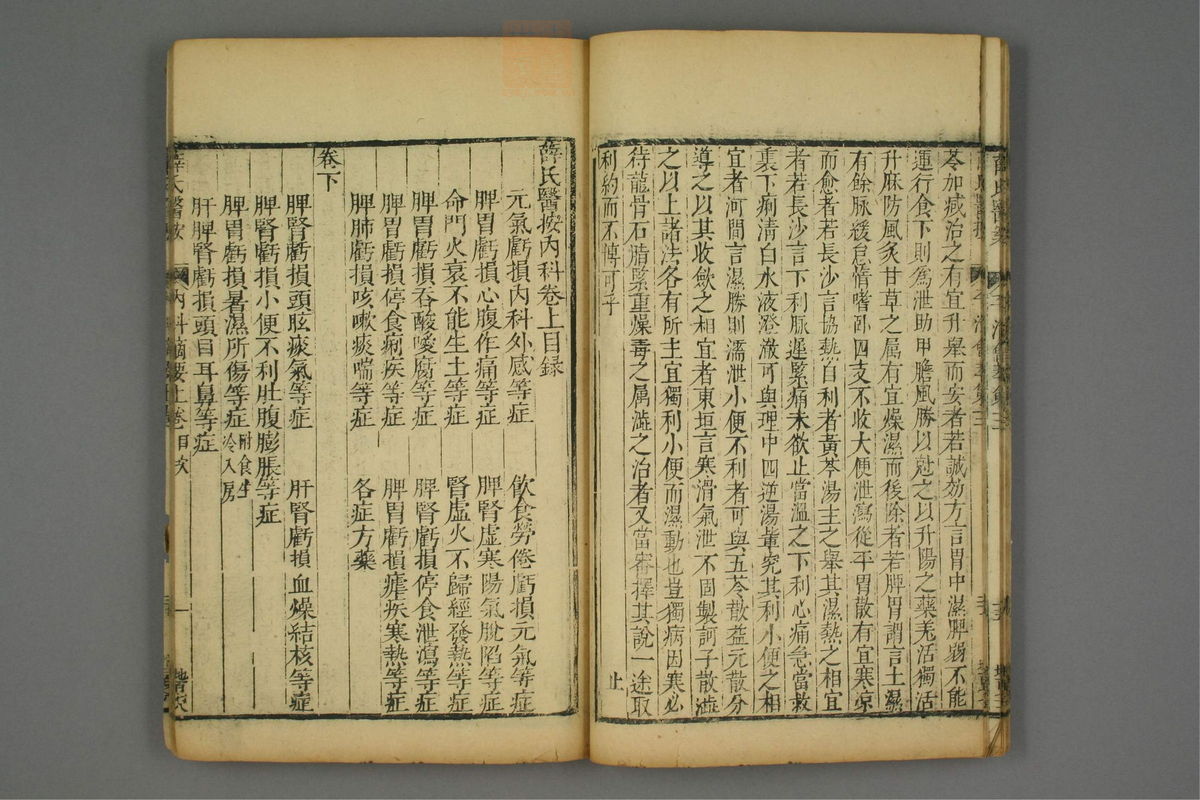 苓加减治之有宜升舉而安者若誠効方言胃中濕脾弱不能
運行食下則為泄助甲膽風勝以尅之以升陽之藥羌活獨活
升麻防風炙甘草之属有宜燥濕而後除者若脾胃謂言土濕
有餘脉緩怠惰嗜卧四支不收大便泄瀉從平胃散有宜寒凉
而愈者若長沙言協熱自利者黃芩湯主之舉其濕熱之相宜
者若長沙言下利脈遲緊痛未欲止當溫之下利心痛急當救
裏下痢清白水液澄澈可與理中四逆湯軰究其利小便之相
宜者河間言濕勝則濡泄小便不利者可與五苓散益元散分
導之以其收斂之相宜者東垣言寒滑氣泄不固製訶子散澁
之以上諸法各有所主宜獨利小便而濕動也豈獨病因寒必
待龍骨石脂緊重燥毒之属澁之治者又當審擇其說一途取
利約而不博可乎
止
薛氏醫按內科卷上目録
元氣虧損內科外感等症
飲食勞倦虧損元氣等症
脾胃虧損心腹作痛等症
脾腎虛寒陽氣脫陷等症
命門火衰不能生土等症
腎虛火不歸經發熱等症
脾胃虧損吞酸噯腐等症
脾腎虧損停食泄瀉等症
脾胃虧損停食痢疾等症
脾胃虧損瘧疾寒熱等症
脾肺虧損咳嗽痰喘等症
各症方藥
卷下
脾腎虧損頭眩痰氣等症
肝腎虧損血燥結核等症
脾腎虧損小便不利肚腹膨脹等症
脾胃虧損暑濕所傷等症
附食生
冷入房
肝脾腎虧損頭目耳鼻等症
薛氏醫按
內科摘要上卷目次
一